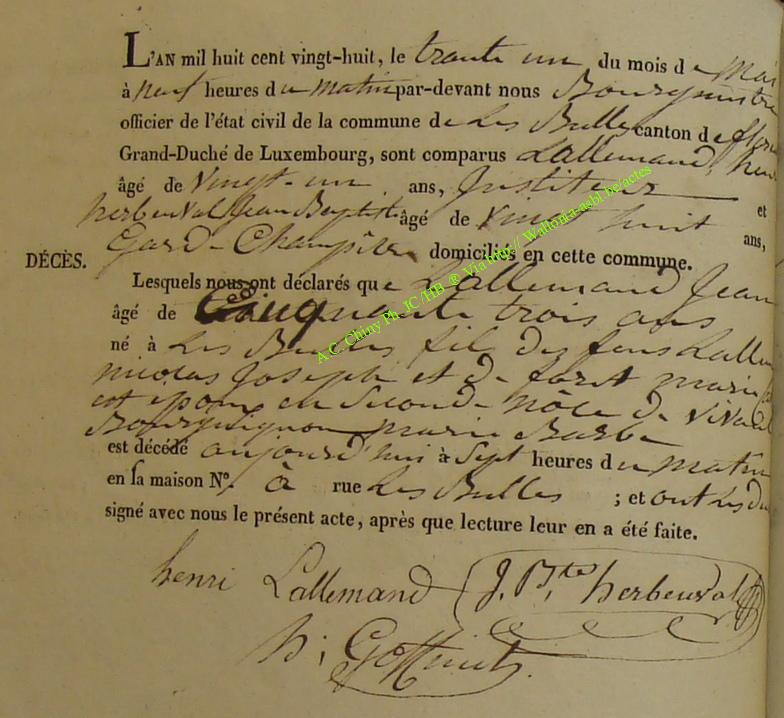 L'AN mil huit cent vingt-huit, le trante un du mois de Mai
à neuf heures du matin par-devant nous Bourgmestre
officier de l'état civil de la commune de Les Bulles canton de
Grand-Duché de Luxembourg, sont comparus Lallemand, henri
âgé de Vingt-un ans, Instituteur et
herbeuval Jean Baptiste âgé de Vingt huit ans,
Gard-Champêtre domiciliés en cette commune.
DÉCÈS.
Lesquels nous ont déclarés que Lallemand Jean
âgé de Cinquante trois ans
né à Les Bulles fils des feus Lallem
nicolas Joseph et de foret marie
est epoux en Seconde nôce de vivant
Bourguignon marie Barbe
est décédé aujourd'hui à Sept heures du matin
en sa maison N°. à rue Les Bulles ; et ont Les du
signé avec nous le présent acte, après que lecture leur en a été faite.
henri Lallemand J. B.te herbeuval
h;
A.C. Chiny Ph. JC /HB ® Via http:// Wallonia-asbl.be/actes